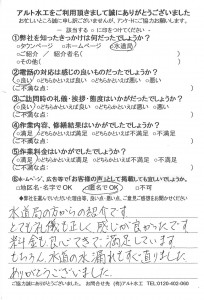 アルト水工をご利用頂きまして誠にありがとうございました
お忙しいところ誠に申し訳ございませんが、アンケートにご協力お願いします。
― 該当する○に印をつけてください ―
①弊社を知ったきっかけは何だったでしょうか?
○タウンページ ○ホームページ ○水道局
○ご紹介 / 紹介者名( )
○その他( )
②電話の対応は感じの良いものだったでしょうか?
○良い ○どちらかといえば良い ○悪い
<ご不満な点>
③ご訪問時の礼儀・挨拶・態度はいかがだったでしょうか?
○良い ○どちらかといえば良い ○悪い
<ご不満な点>
④作業内容、修繕結果はいかがでしょうか?
○満足 ○どちらかといえば満足 ○不満足
<ご不満な点>
⑤作業料金はいかがでしたでしょうか?
○満足 ○どちらかといえば満足 ○不満足
<ご不満な点>
⑥ホームページ、広告等で「お客様の声」として掲載しても宜しいでしょうか?
○地区名・名字でOK ○匿名でOK ○不可
◆弊社を選んでいただいた理由は、ご感想、ご意見等お書きください。
水道局の方からの紹介です。
とても礼儀も正しく感じが良かったです
料金も良心てきで満足しています
もちろん水道の水漏れもすぐ直りました
ありがとうございました。
ご協力誠にありがとうございました。 お問合せ先 (有)アルト水工 TEL0120-602-060